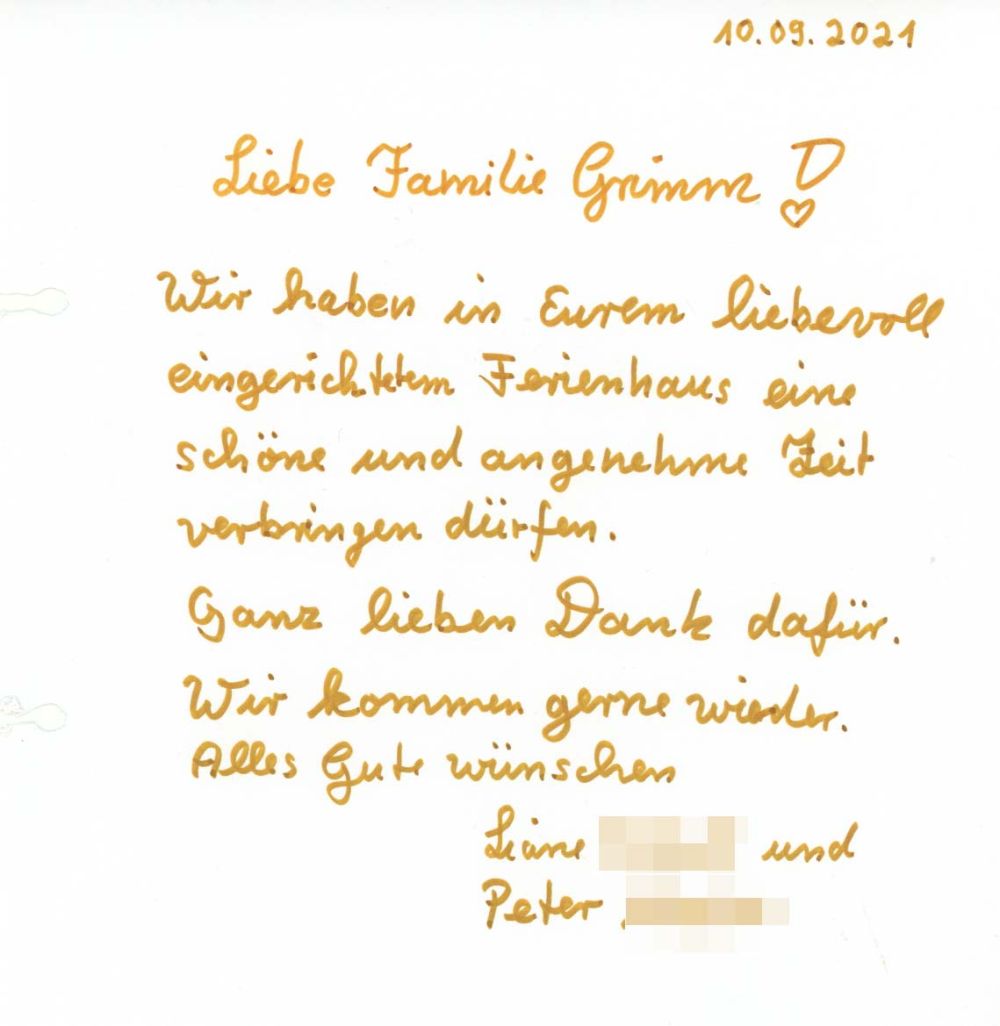 10.09.2021
Liebe Familie Grimm!
Wir haben in Eurem liebevoll
eingerichtetem Ferienhaus eine
schöne und angenehme Zeit
verbringen dürfen.
Ganz lieben Dank dafür.
Wir kommen gerne wieder.
Alles Gute wünschen
Liane und
Peter